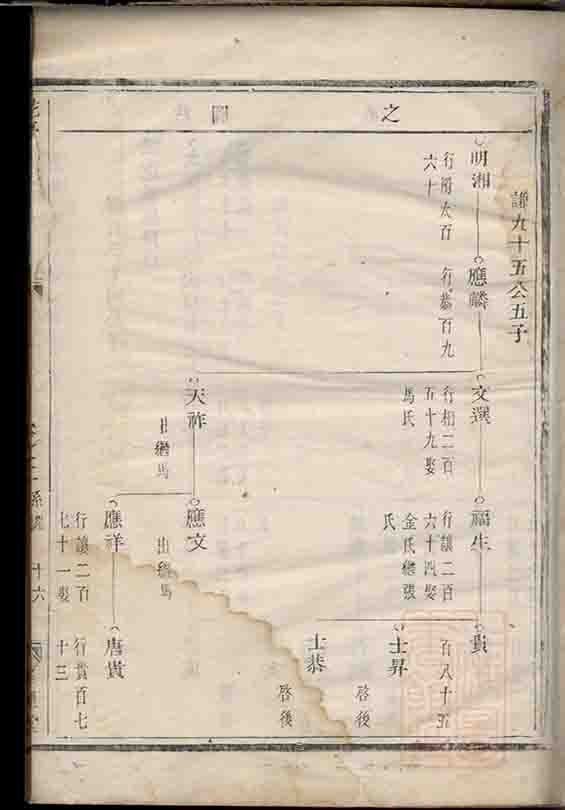 之
圖
謙九十五公五子
明湘
行
六百
六十
應麟
行恭百九
文選
行相二百
五十九娶
馬氏
福生
行讓二百
六十四娶
金氏繼張
氏
貴
百八十
士昇
啓後
士恭
啓後
天祚
出繼馬
應文
出繼馬
應祥
行讓二百
七十一娶
唐貴
行貴百七
十三
十六